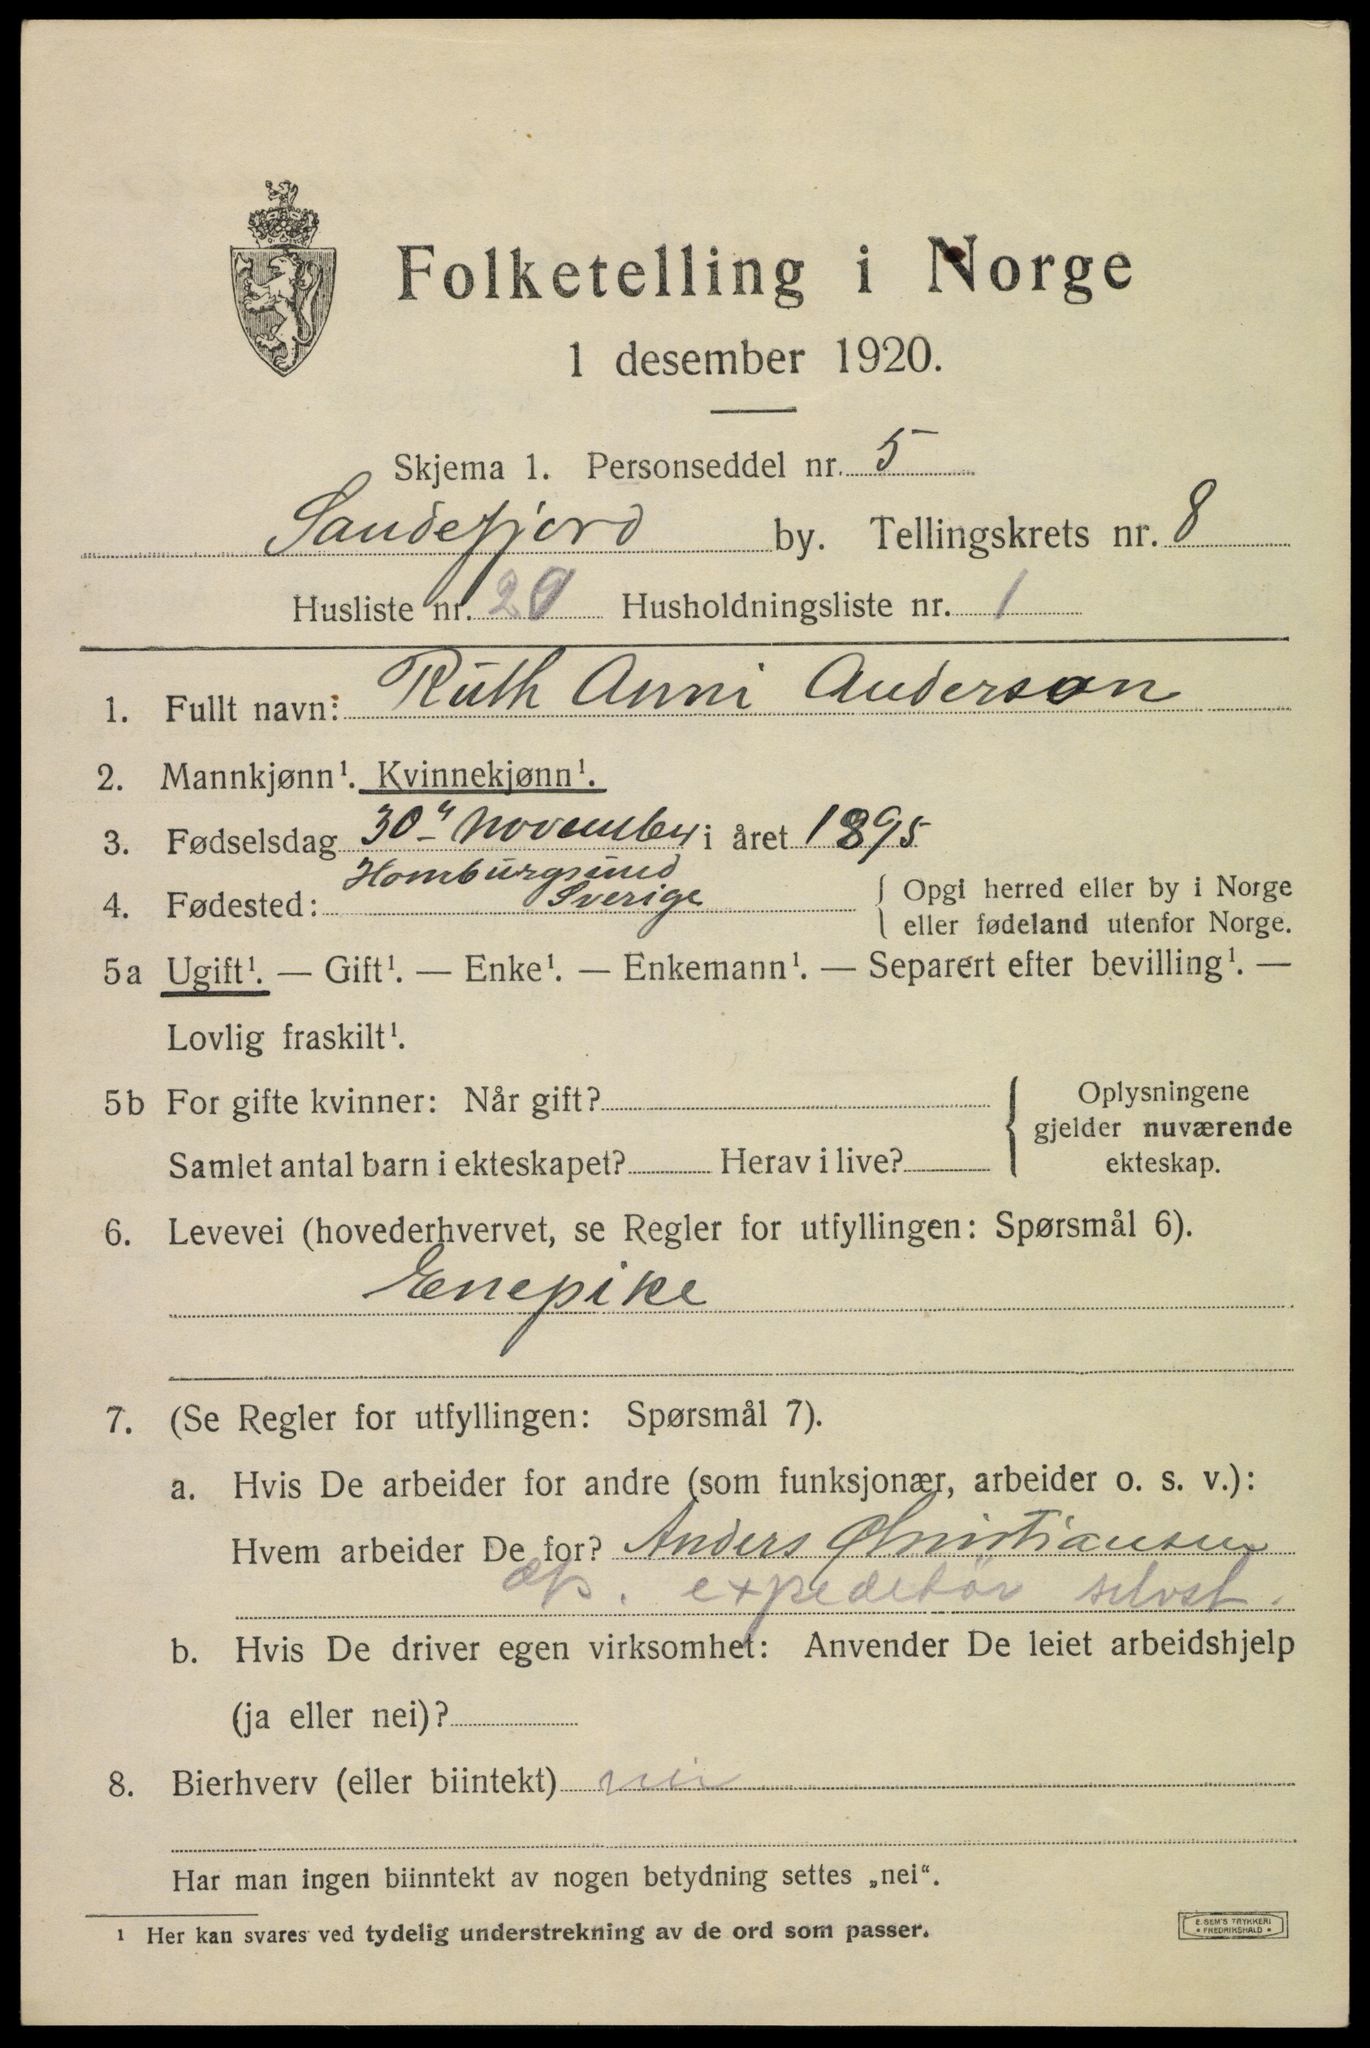 Folketelling i Norge
1 desember 1920.
Skjema 1. Personseddel nr. 5
Sandefjord by. Tellingskrets nr. 8
Husliste nr. 20 Husholdningsliste nr. 1
1. Fullt navn: Ruth Anni Anderson
2. Mannkjønn¹. Kvinnekjønn¹.
3. Fødselsdag 30 November i året 1895
Homburgsund
4. Fødested: Sverige { Opgi herred eller by i Norge
eller fødeland utenfor Norge.
5a Ugift¹. — Gift¹. — Enke¹. — Enkemann¹. — Separert efter bevilling¹. —
Lovlig fraskilt¹.
5b For gifte kvinner: Når gift? { Oplysningene
gjelder nuværende
Samlet antal barn i ekteskapet? Herav i live? ekteskap.
6. Levevei (hovederhvervet, se Regler for utfyllingen: Spørsmål 6).
Enepike
7. (Se Regler for utfyllingen: Spørsmål 7).
a. Hvis De arbeider for andre (som funksjonær, arbeider o. s. v.):
Hvem arbeider De for? Anders Christiansen
expeditör selvst.
b. Hvis De driver egen virksomhet: Anvender De leiet arbeidshjelp
(ja eller nei)?
8. Bierhverv (eller biintekt) nei
Har man ingen biinntekt av nogen betydning settes „nei“.
¹ Her kan svares ved tydelig understrekning av de ord som passer.
E. SEM'S TRYKKERI
• FREDRIKSHALD •